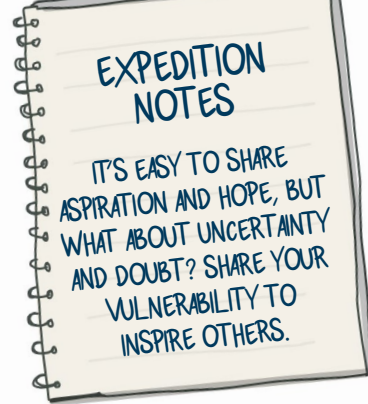 EXPEDITION
NOTES
IT'S EASY TO SHARE
ASPIRATION AND HOPE, BUT
WHAT ABOUT UNCERTAINTY
AND DOUBT? SHARE YOUR
VULNERABILITY TO
INSPIRE OTHERS.